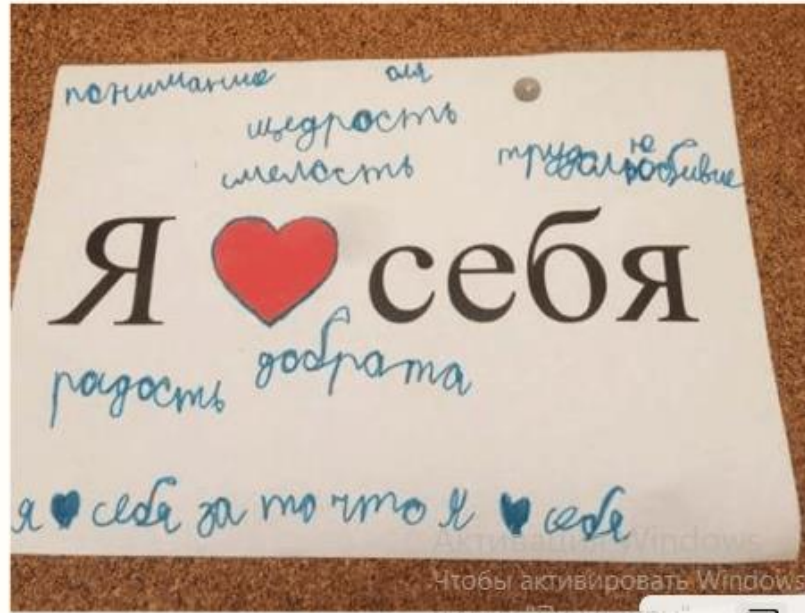 понимание оля
щедрость
смелость трудолюбивие
Я ❤ себя
радость добрата
я ♥ себя за то что я ♥ себя
Активация Windows
Чтобы активировать Windows